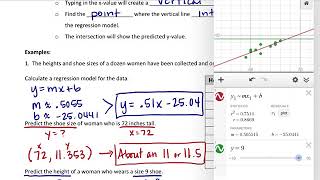 Typing in the x-value will create a vertical
Find the point where the vertical line int
the regression model.
The intersection will show the predicted y-value.
Examples:
1. The heights and shoe sizes of a dozen women have been collected and
Calculate a regression model for the data.
y = mx + b
m ≈ .5055
b ≈ -25.0441
y = .51x - 25.04
Predict the shoe size of woman who is 72 inches tall.
y = ?
x = 72
x y
(72, 11.353)
About an 11 or 11.5
Predict the height of a woman who wears a size 9 shoe.
y₁ ~ mx₁ + b
STATISTICS
RESIDUALS
e₁ plot
PARAMETERS
y = 9